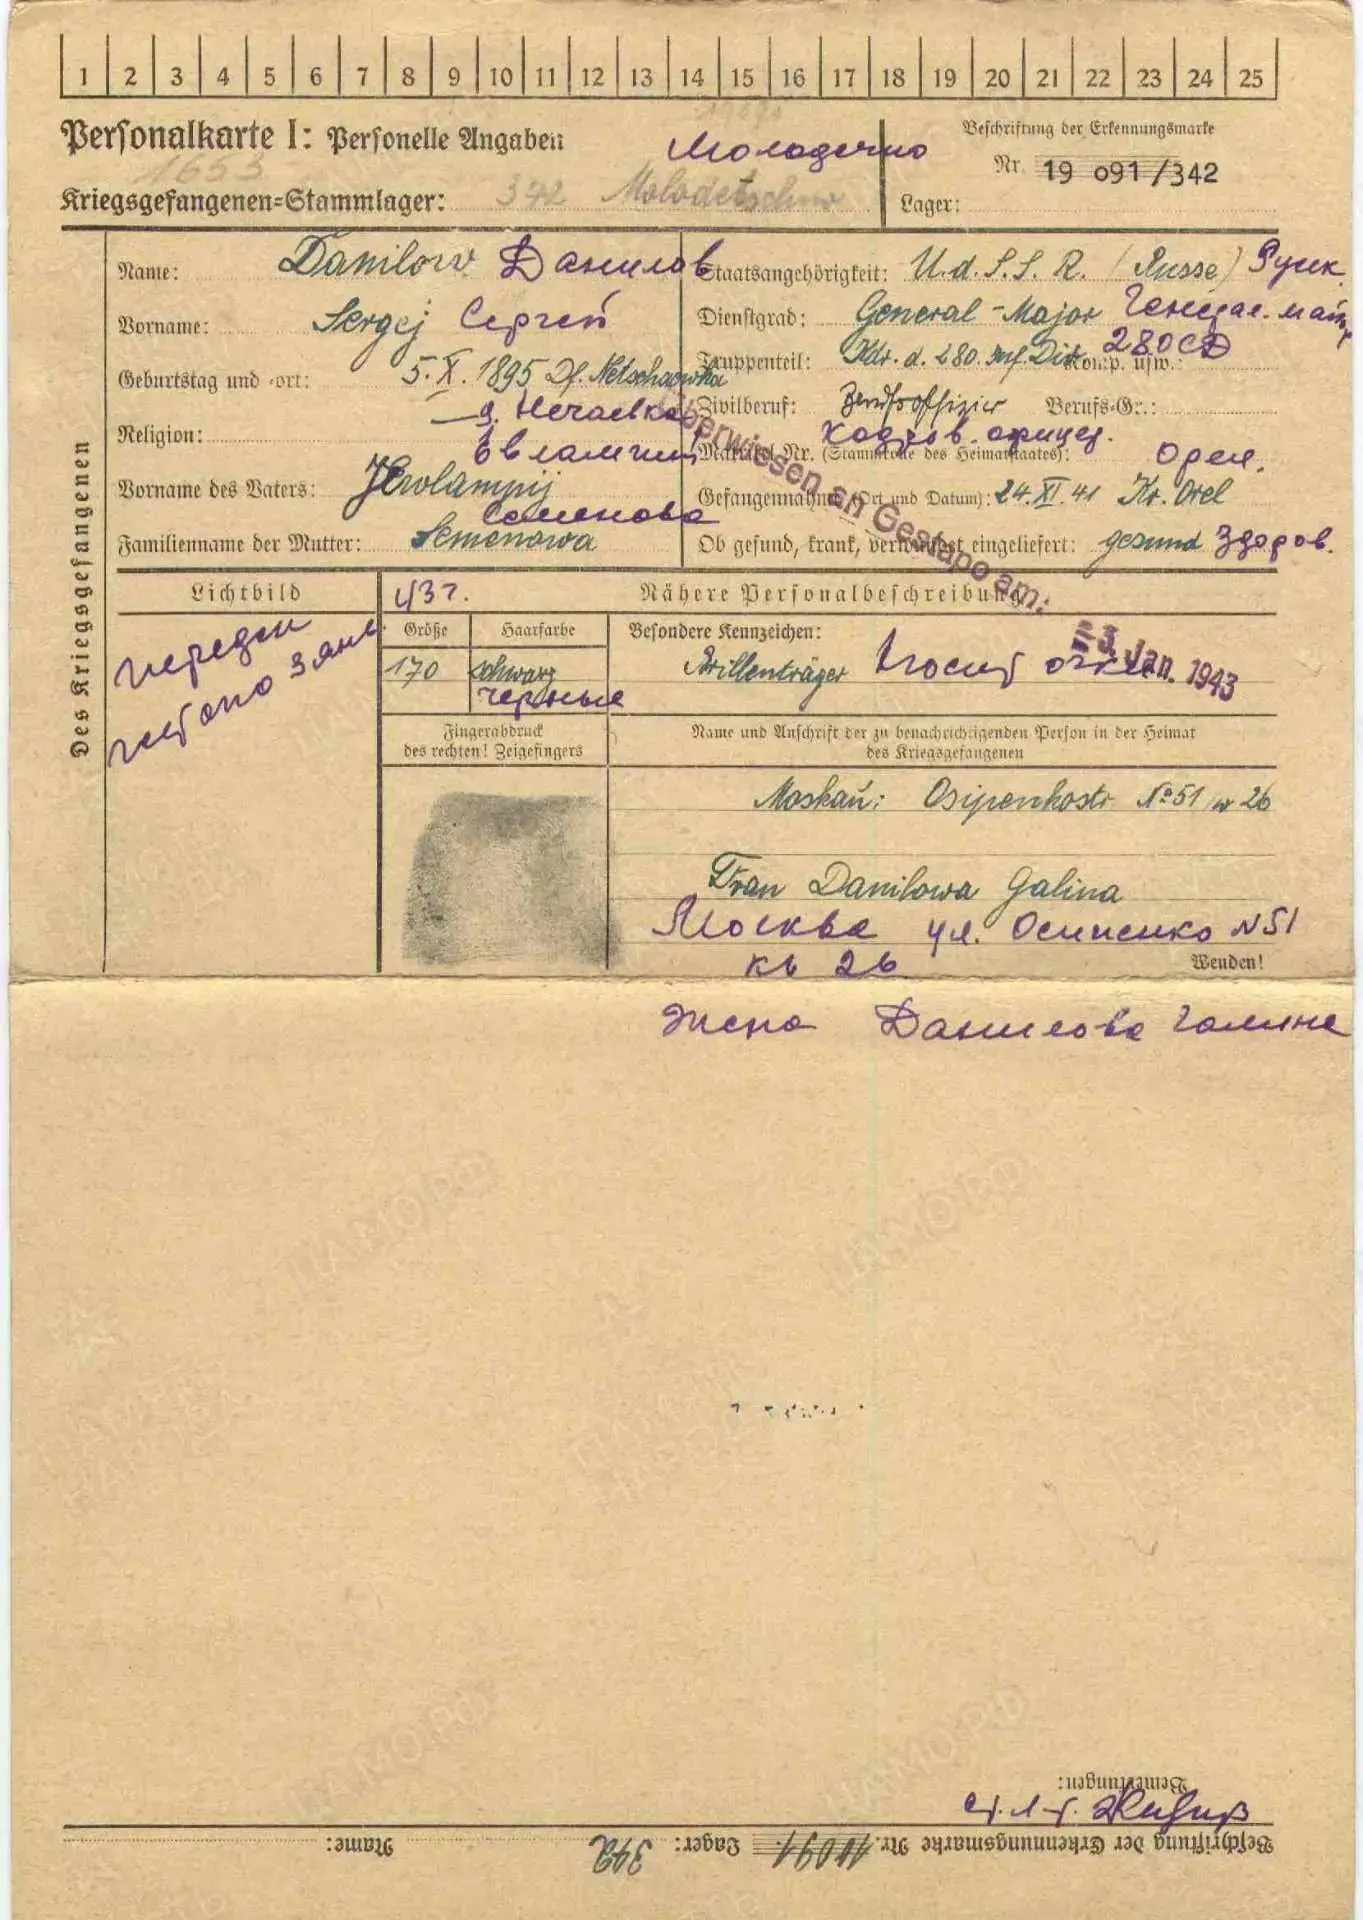 1 2 3 4 5 6 7 8 9 10 11 12 13 14 15 16 17 18 19 20 21 22 23 24 25
Personalkarte I: Personelle Angaben
Молодечно
Beschriftung der Erkennungsmarke
1653
Nr. 19 091/342
Kriegsgefangenen=Stammlager: 342 Molodetschno
Lager:
Des Kriegsgefangenen
Name: Danilow Данилов
Staatsangehörigkeit: U.d.S.S.R. (Russe) Русск.
Vorname: Sergej Сергей
Dienstgrad: General-Major Генерал. майор
Geburtstag und -ort: 5.X.1895 Df. Netschaewka
Truppenteil: Kdr. d. 280. Inf. Div. Komp. usw.: 280 СД
д. Нечаевка
Zivilberuf: Berufsoffizier Berufs-Gr.:
Кадров. офицер.
Religion:
Matrikel Nr. (Stammrolle des Heimatstaates):
Евлампий
Орел.
Vorname des Vaters: Jewlampij
Gefangennahme (Ort und Datum): 24.XI.41 Kr. Orel
Семенова
Familienname der Mutter: Semenowa
Ob gesund, krank, verwundet eingeliefert: gesund Здоров.
Überwiesen an Gestapo am:
= 3. Jan. 1943
Lichtbild
Nähere Personalbeschreibung
передан
гестапо 3 янв
43г.
Größe
Haarfarbe
Besondere Kennzeichen:
170
schwarz
черные
Brillenträger носит очки
Fingerabdruck
des rechten! Zeigefingers
Name und Anschrift der zu benachrichtigenden Person in der Heimat
des Kriegsgefangenen
Moskau: Osipenkostr №51 w 26
Frau Danilowa Galina
Москва ул. Осипенко N 51
кв 26
Wenden!
Жена Данилова Галина
Bemerkungen:
ст. л-т.
Beschriftung der Erkennungsmarke Nr. 19091 Lager: 342 Name:
ЦАМО.РФ